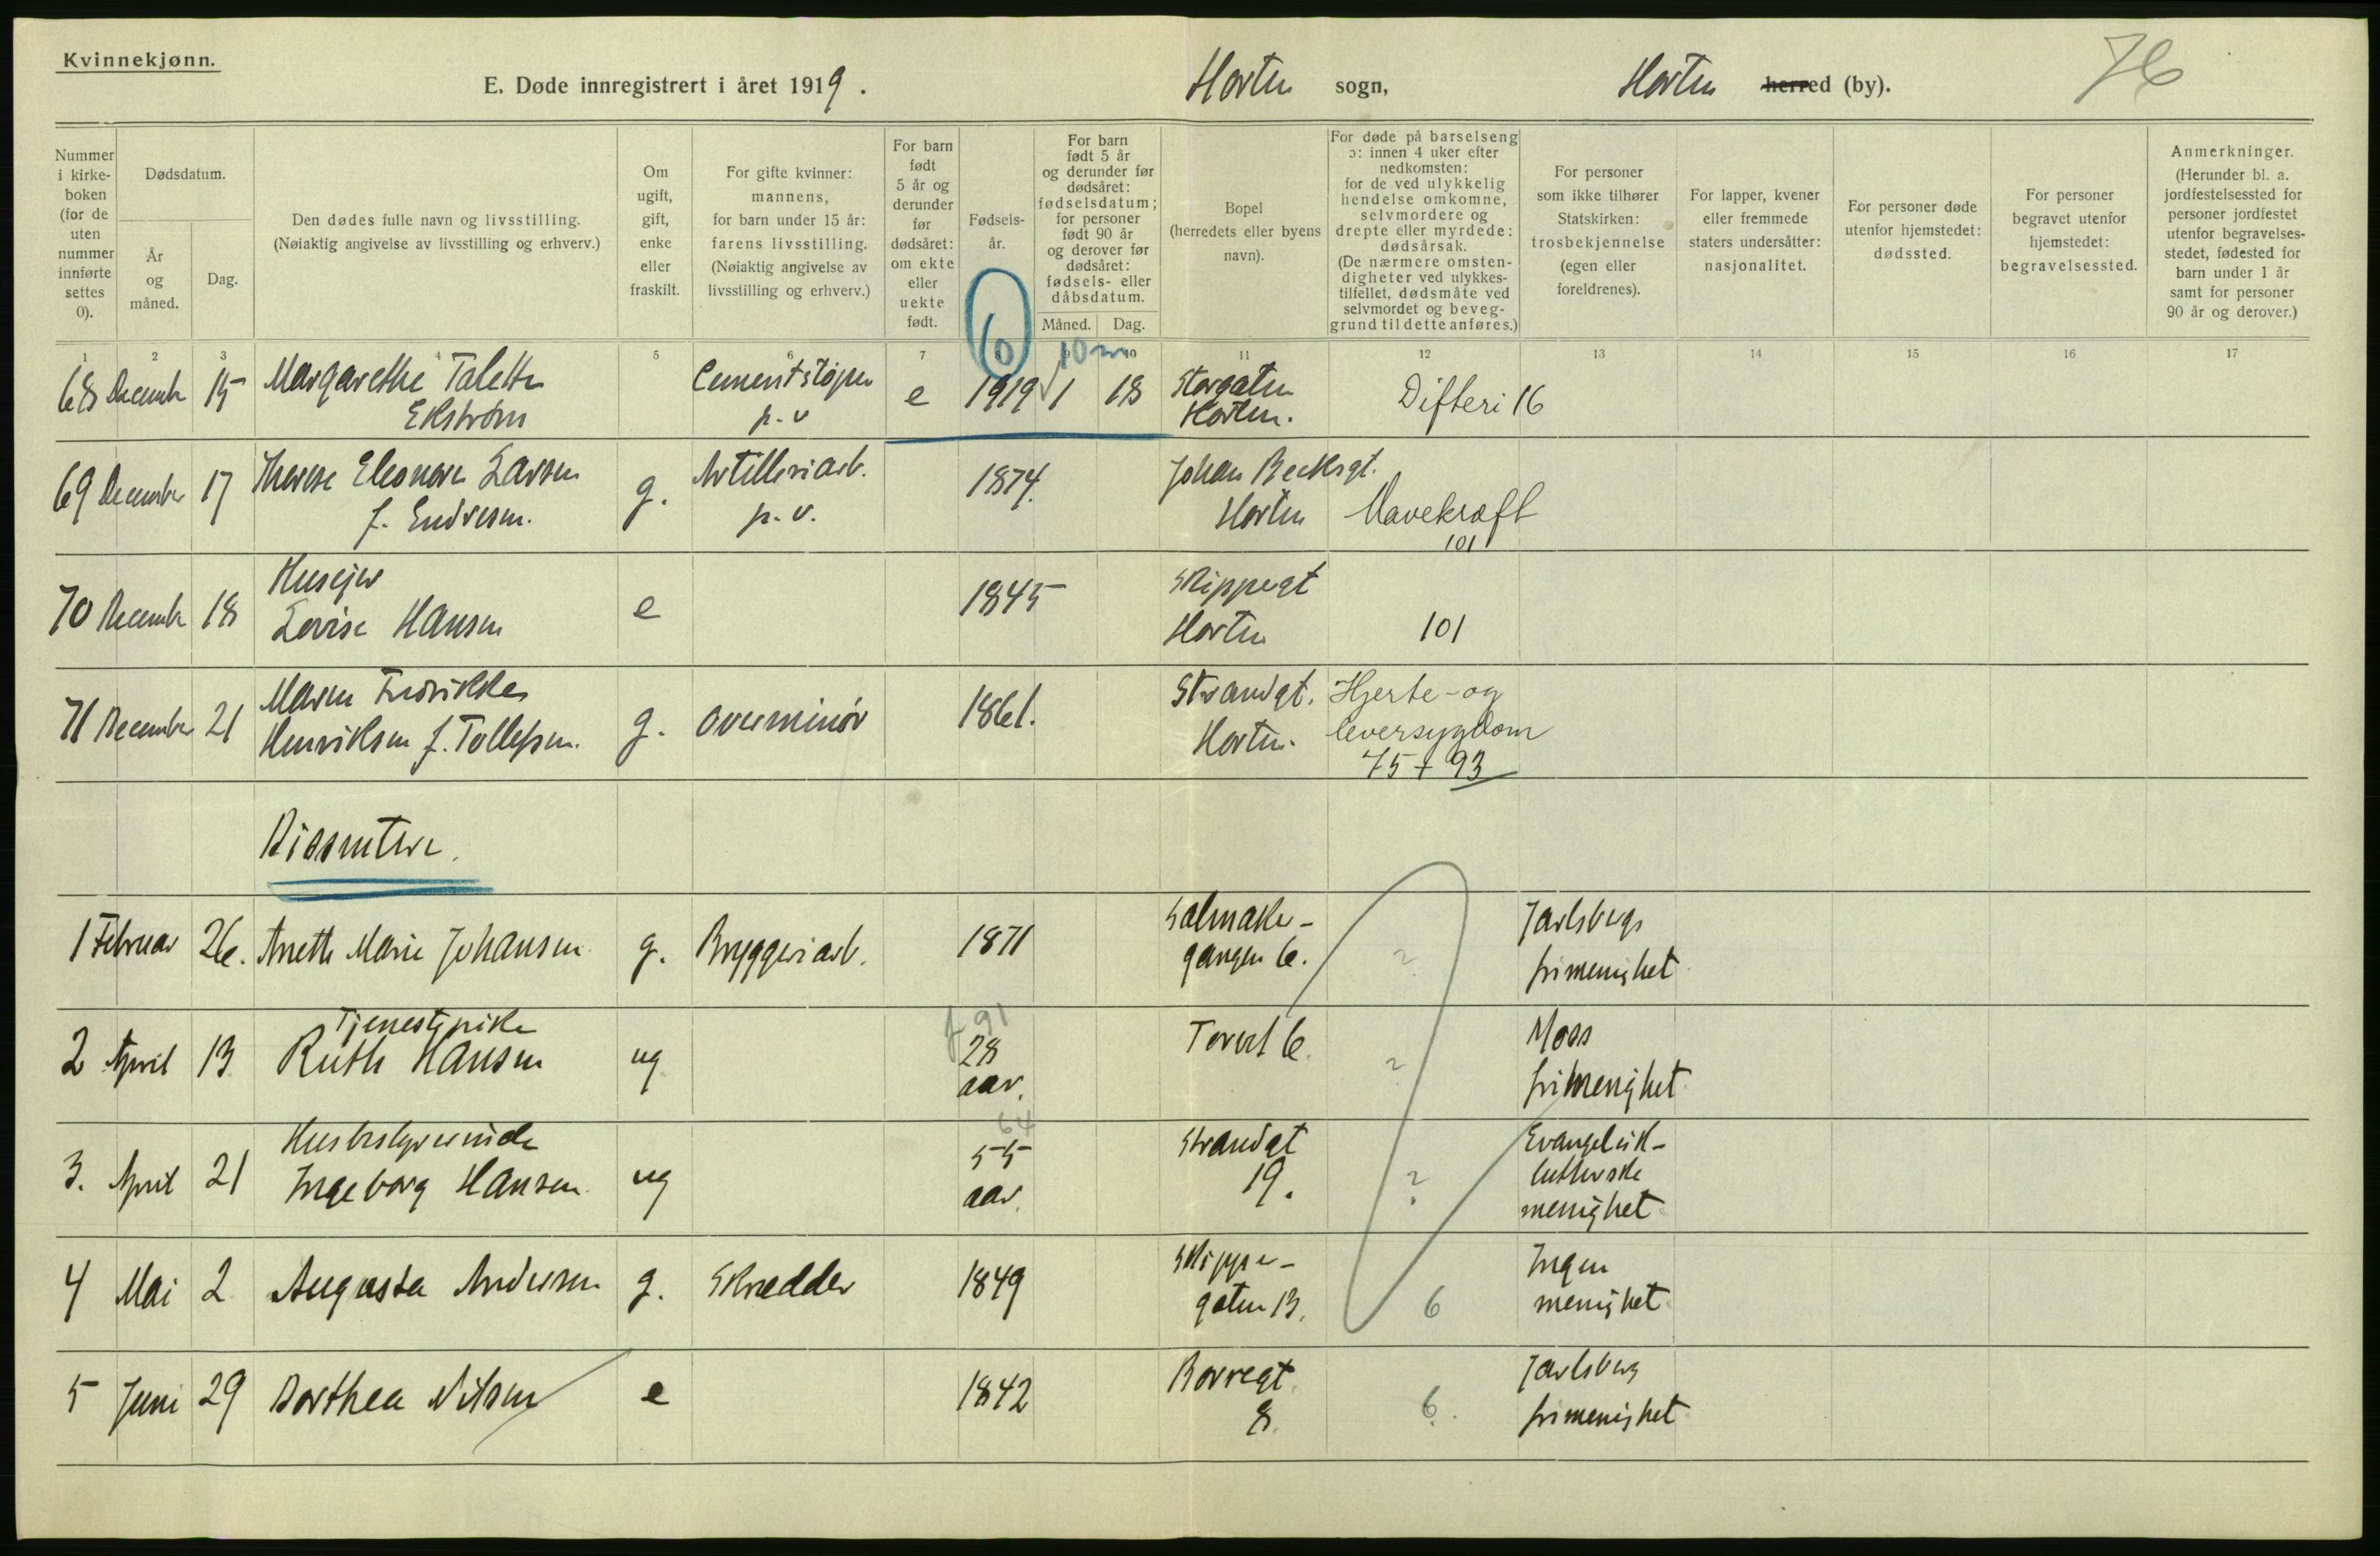 Kvinnekjønn.
E. Døde innregistrert i året 1919.
Horten sogn,
Horten herred (by).
76
Nummer i kirkeboken (for de uten nummer innførte settes 0).
Dødsdatum.
År og måned.
Dag.
Den dødes fulle navn og livsstilling.
(Nøiaktig angivelse av livsstilling og erhverv.)
Om ugift, gift, enke eller fraskilt.
For gifte kvinner: mannens, for barn under 15 år: farens livsstilling. (Nøiaktig angivelse av livsstilling og erhverv.)
For barn født 5 år og derunder før dødsåret: om ekte eller uekte født.
Fødselsår.
For barn født 5 år og derunder før dødsåret: fødselsdatum; for personer født 90 år og derover før dødsåret: fødsels- eller dåbsdatum.
Måned. Dag.
Bopel (herredets eller byens navn).
For døde på barselseng ɔ: innen 4 uker efter nedkomsten: for de ved ulykkelig hendelse omkomne, selvmordere og drepte eller myrdede: dødsårsak. (De nærmere omstendigheter ved ulykkestilfellet, dødsmåte ved selvmordet og beveggrund til dette anføres.)
For personer som ikke tilhører Statskirken: trosbekjennelse (egen eller foreldrenes).
For lapper, kvener eller fremmede staters undersåtter: nasjonalitet.
For personer døde utenfor hjemstedet: dødssted.
For personer begravet utenfor hjemstedet: begravelsessted.
Anmerkninger. (Herunder bl. a. jordfestelsessted for personer jordfestet utenfor begravelsesstedet, fødested for barn under 1 år samt for personer 90 år og derover.)
1 2 3 4 5 6 7 8 9 10 11 12 13 14 15 16 17
6 10 m
68 December 15 Margarethe Talette Cementstøper e 1919 1 18 Storgaten Difteri 16
Ekstrøm p. v Horten.
69 December 17 Therese Eleonore Larsen g. Artilleriarb. 1874. Johan Becksgt.
f. Endresen. p. v. Horten Mavekræft
101
70 December 18 Huseier e 1845 Skippergt
Lovise Hansen Horten 101
71 December 21 Maren Fredrikke g. Overminør 1861. Strandgt. Hjerte- og
Henriksen f. Tollefsen. Horten. leversygdom
75 + 93
Dissentere.
1 Februar 26. Anette Marie Johansen g. Bryggeriarb. 1871 Salmaker- ? Jarlsbergs
gangen 6. frimenighet
2 April 13 Tjenestepike ug f 91 Torvet 6 ? Moss
Ruth Hansen 28 aar. frimenighet
3. April 21 Husbestyrerinde ug 64 Strandgt ? Evangelisk-
Ingeborg Hansen 55 aar. 19. lutherske menighet
4 Mai 2 Augusta Andersen g. Skrædder 1849 Skipper- 6 Ingen
gaten 13. menighet
5 Juni 29 Dorthea Nilsen e 1842 Borregt. 6. Jarlsberg
8. frimenighet